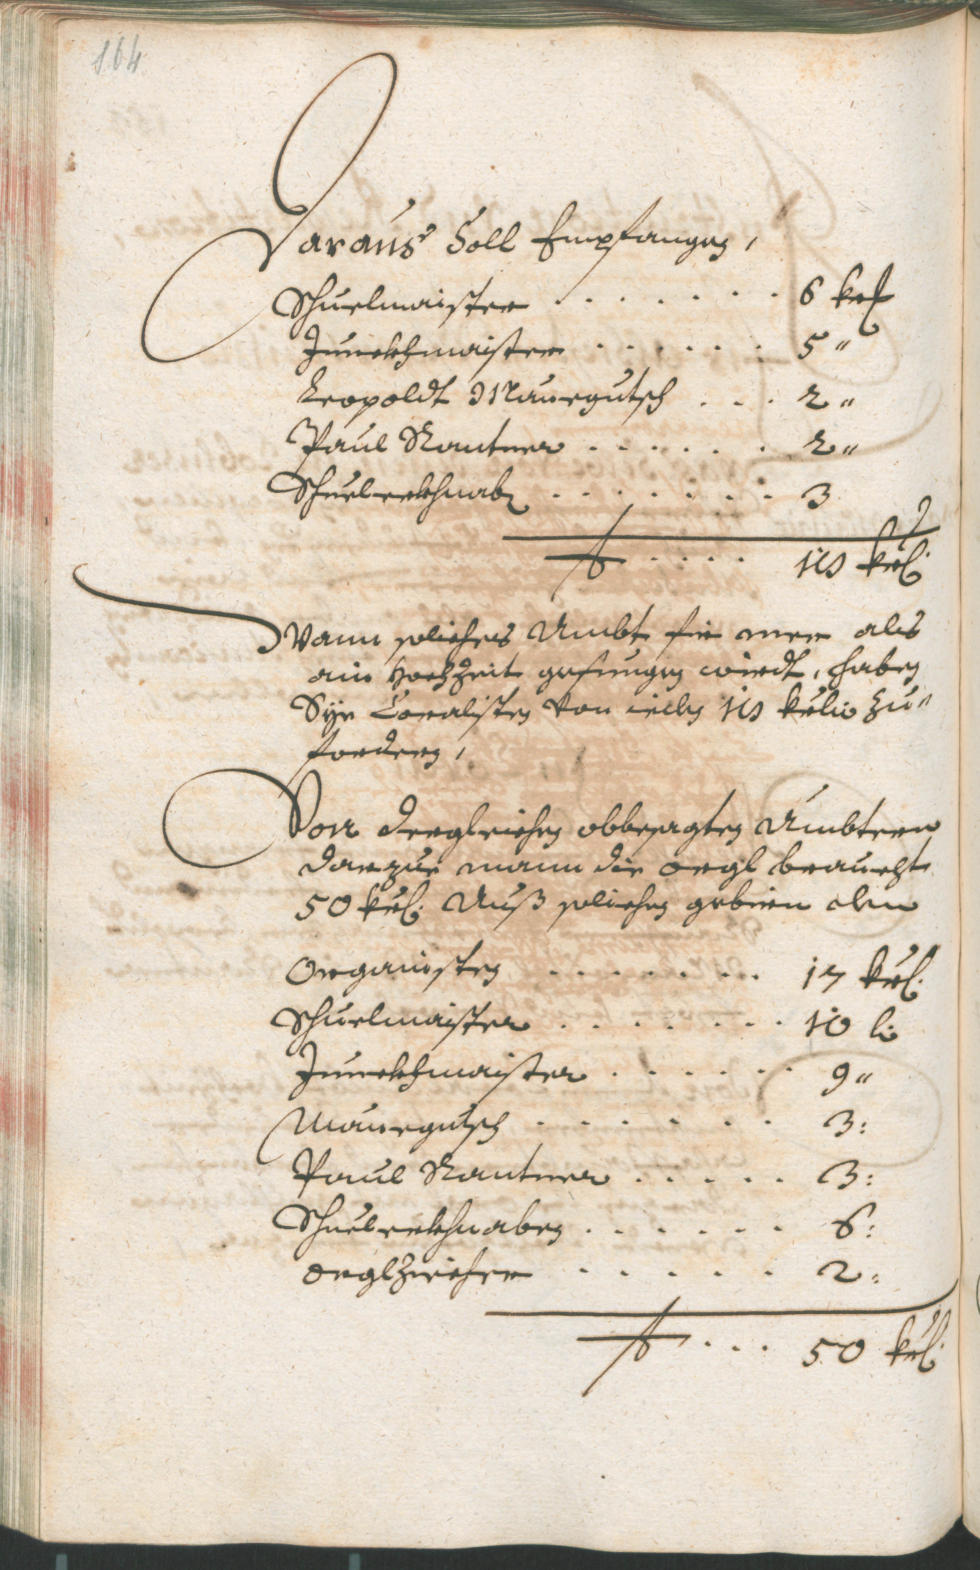 164
Daraus Soll Empfangen,
Schuelmaister . . . . . . . 6 krl
Junckhmaister . . . . . . 5 "
Leopoldt Maurgutsch . . . 2 "
Paul Kantner . . . . . . 2 "
Schuelreckhnabn . . . . . . . 3
. . . . 18 krl:
Wann soliches Ambt für einen als
ain Hochzeit gesungen wirdt, haben
Sye Coralisten von iedes 18 krl zu"
fordern,
Von dergleichen obbesagten Ambtern
darzue mann die orgl braucht
50 krl: Muß solichen geben den
Organisten . . . . . . . 17 krl:
Schuelmaister . . . . . . . 10
Junckhmaister . . . . . . 9 "
Maurgutsch . . . . . . . 3:
Paul Kantner . . . . . 3:
Schuelreckhnaben . . . . . . 6:
Orglziecher . . . . . 2:
. . . 50 krl: